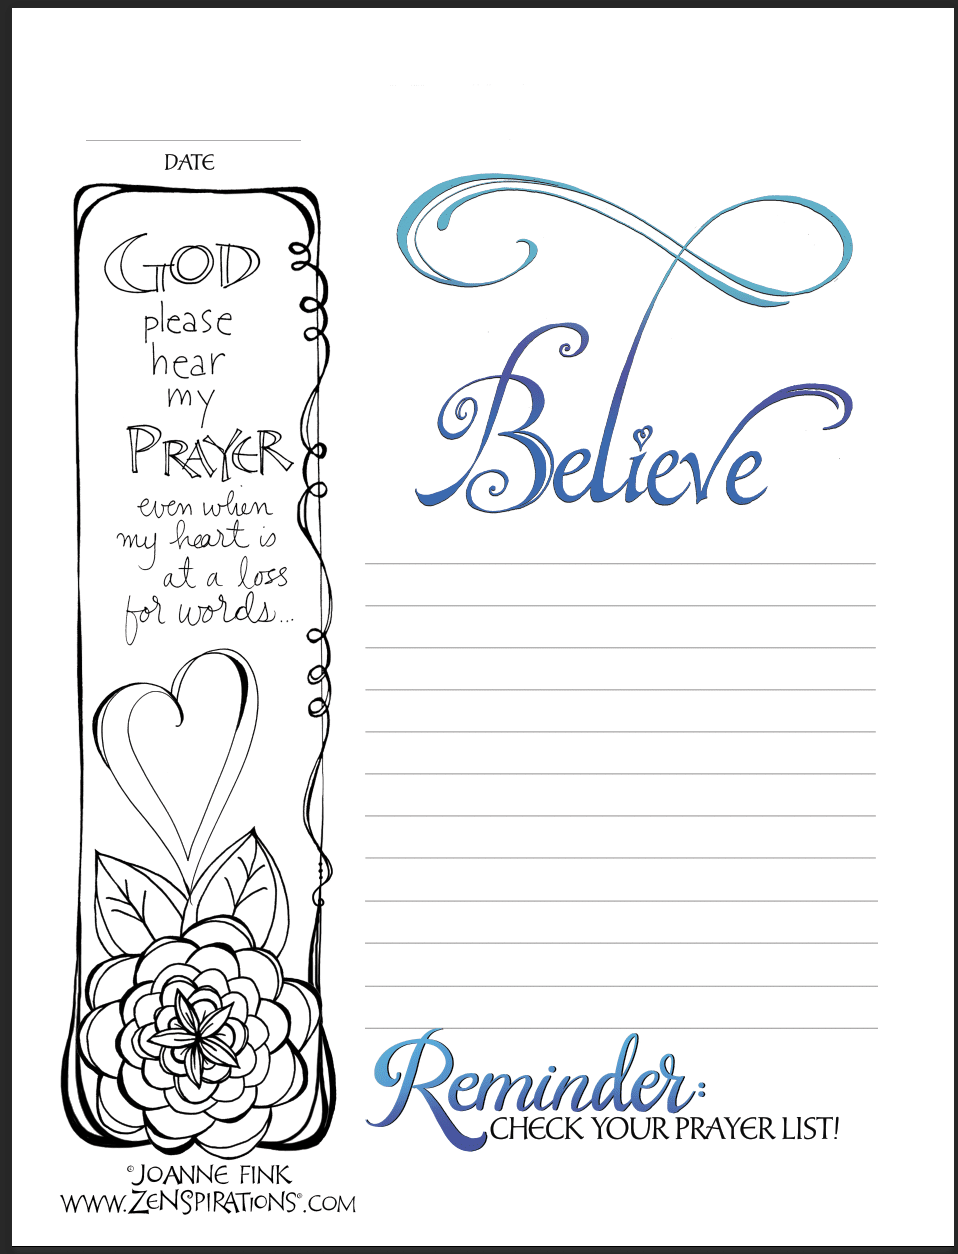 DATE
GOD
please
hear
my
PRAYER
even when
my heart is
at a loss
for words...
Believe
Reminder:
CHECK YOUR PRAYER LIST!
©JOANNE FINK
WWW.ZENSPIRATIONS®.COM